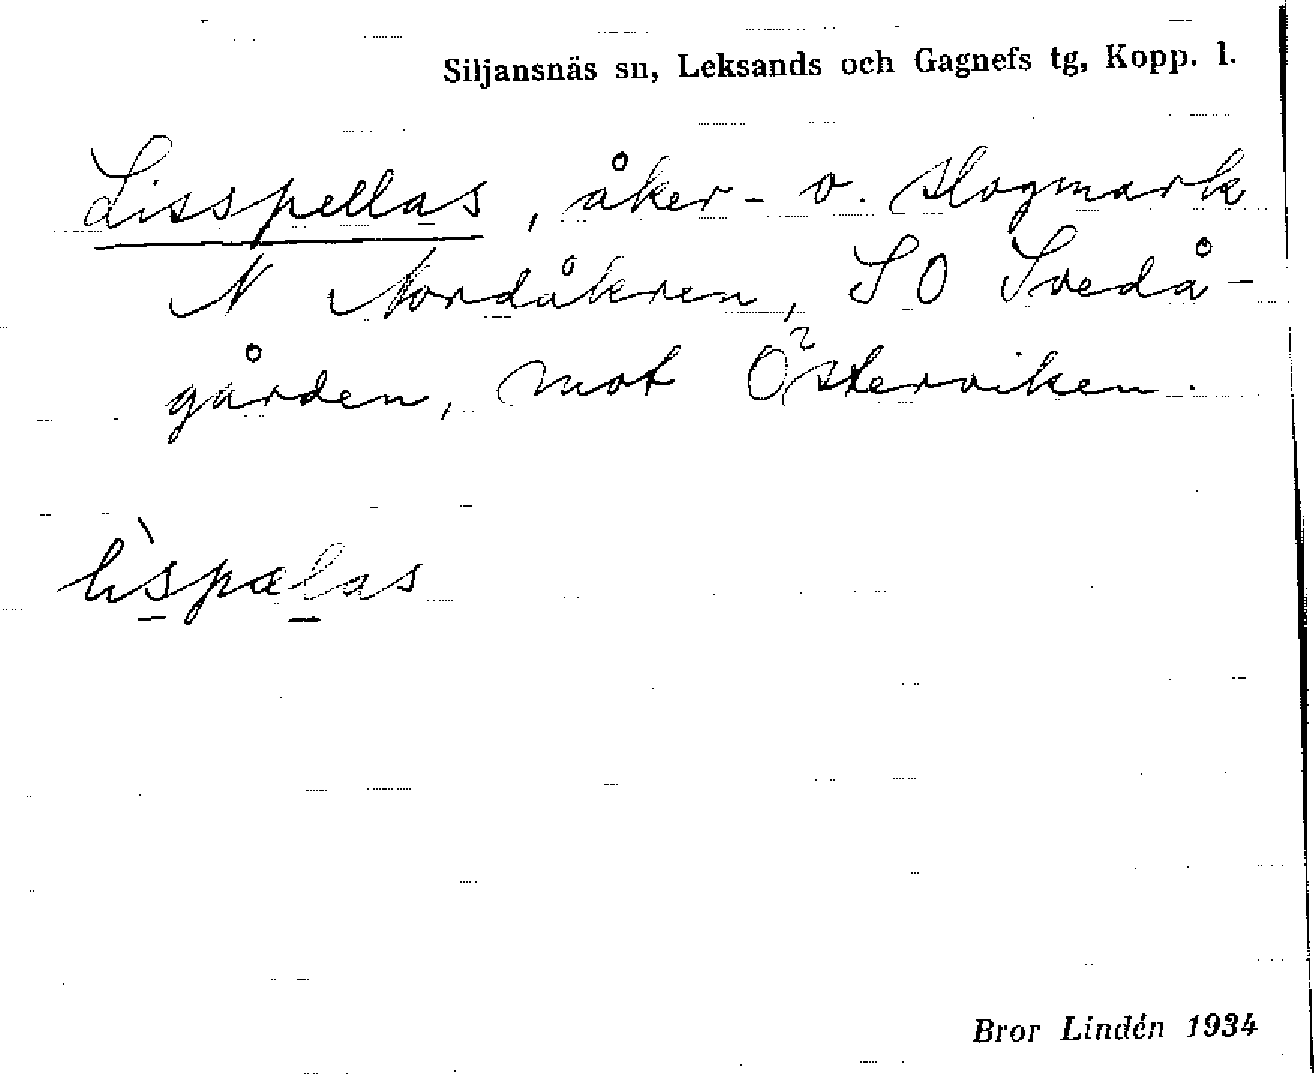 Siljansnäs sn, Leksands och Gagnefs tg, Kopp. l.
Lisspellas, åker- o. slogmark
N Nordåkren, SO Svedå-
gården, mot Österviken.
lìspælas
Bror Lindén 1934